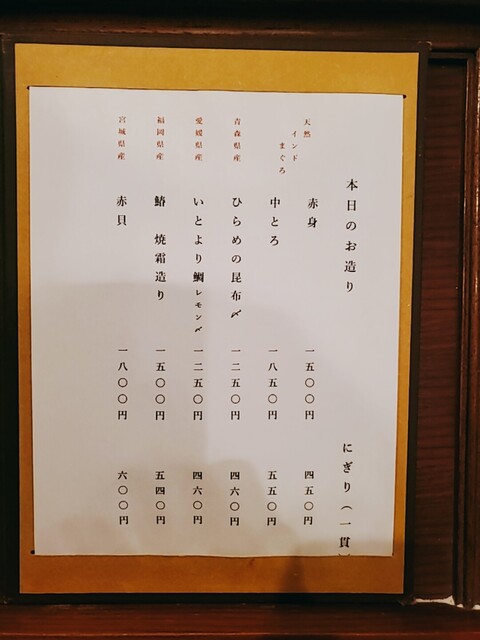 本日のお造り にぎり（一貫）
天然 インド まぐろ
赤身 一五〇〇円 四五〇円
中とろ 一八五〇円 五五〇円
青森県産 ひらめの昆布〆 一二五〇円 四六〇円
愛媛県産 いとより鯛レモン〆 一二五〇円 四六〇円
福岡県産 鰆 焼霜造り 一五〇〇円 五四〇円
宮城県産 赤貝 一八〇〇円 六〇〇円